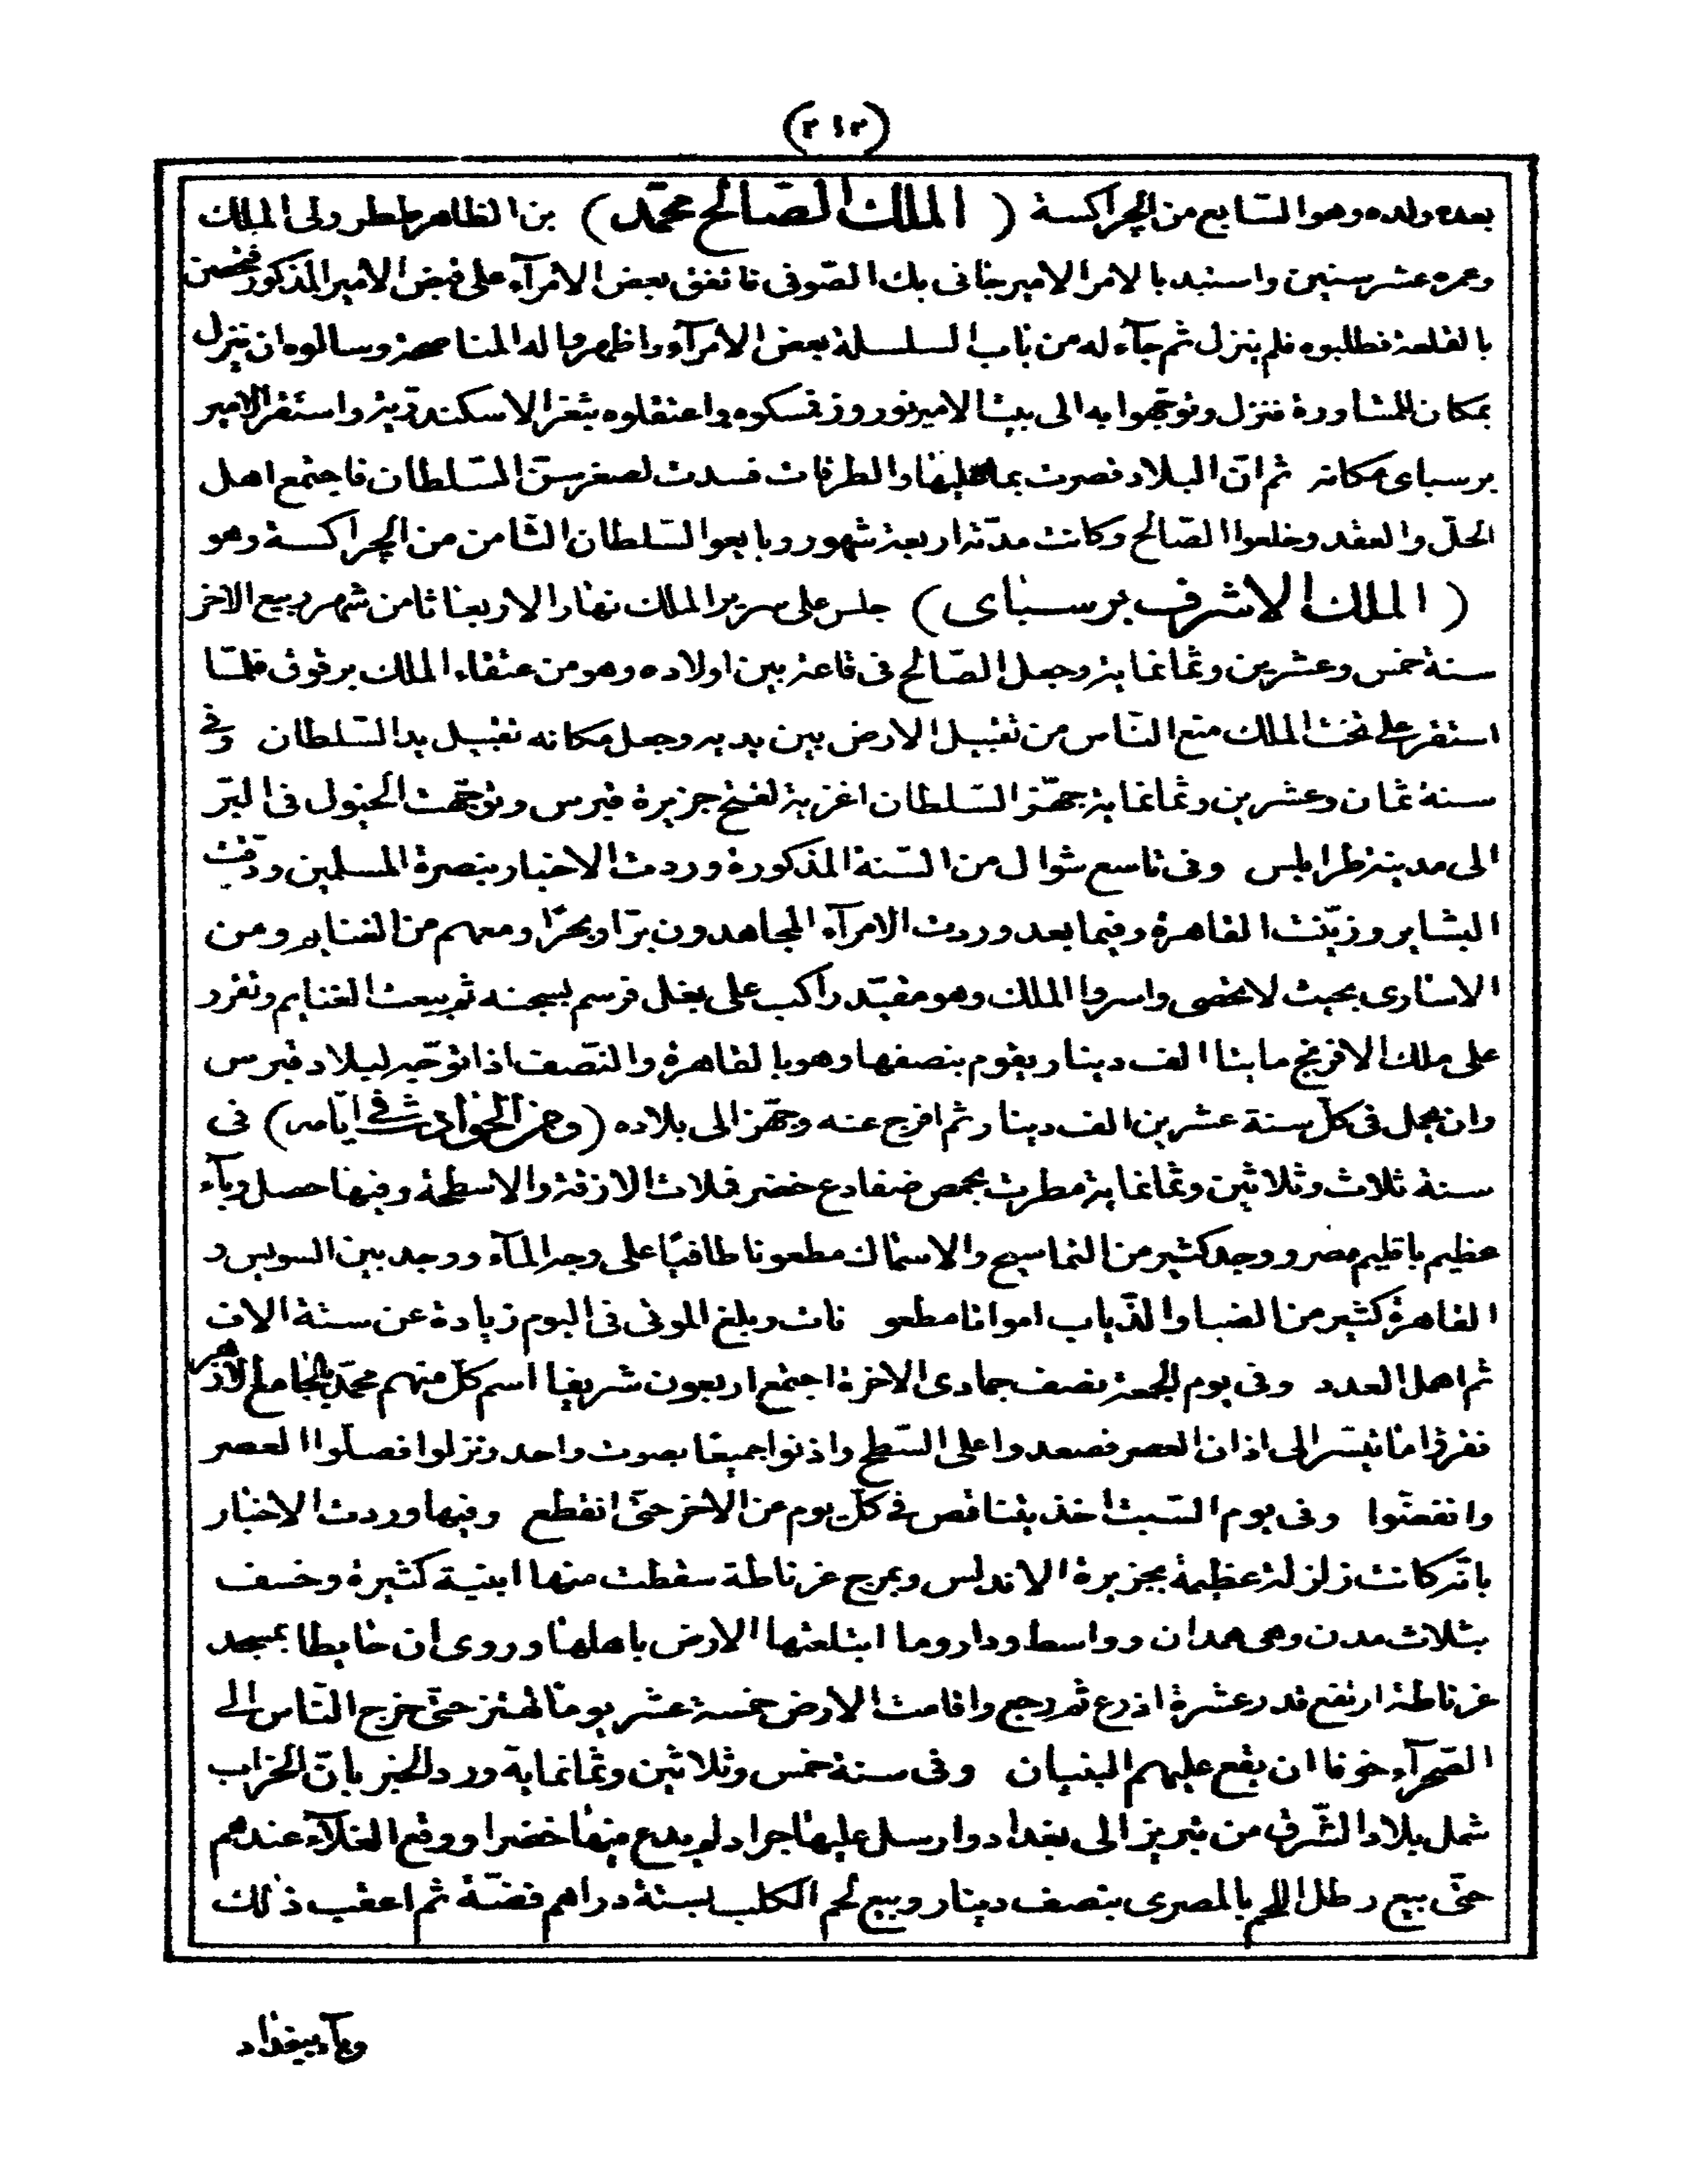 (٢١٣)
بعده ولده وهو السّابع من الجراكسة ( الملك الصّالح محمّد ) بن الظاهر ططر ولى الملك
وعمره عشر سنين واستبد بالامر الامير جانى بك الصّوفى فاتفق بعض الامرآء على قبض الامير المذكور فتحصن
بالقلعة فطلبوه فلم ينزل ثم جآء له من باب السلسلة بعض الامرآء واظهروا له المناصحة وسالوه ان ينزل
بمكان للمشاورة فنزل وتوجّهوا به الى بيت الامير نوروز فمسكوه واعتقلوه بثغر الاسكندريّة واستقر الامير
برسباى مكانه ثم انّ البلاد قصرت بما عليها والطرقات فسدت لصغر سنّ السّلطان فاجتمع اهل
الحلّ والعقد وخلعوا الصّالح وكانت مدّته اربعة شهور وبايعوا السّلطان الثّامن من الجراكسة وهو
( الملك الاشرف برسباى ) جلس على سرير الملك نهار الاربعا ثامن شهر ربيع الاخر
سنة خمس وعشرين وثمانماية وجعل الصّالح فى قاعة بين اولاده وهو من عتقاء الملك برقوق فلمّا
استقر على تخت الملك منع النّاس من تقبيل الارض بين يديه وجعل مكانه تقبيل يد السّلطان وفى
سنة ثمان وعشرين وثمانماية جهّز السّلطان اغزية لفتح جزيرة قبرس وتوجّهت الخيول فى البّر
الى مدينة طرابلس وفى تاسع شوال من السّنة المذكورة وردت الاخبار بنصرة المسلمين ودقّت
البشاير وزيّنت القاهرة وفيما بعد وردت الامرآء المجاهدون برّا وبحرّا ومعهم من الغنايم ومن
الاسارى بحيث لا تحصى واسروا الملك وهو مقيّد راكب على بغل فرسم بسجنه ثم بيعت الغنايم وتقرر
على ملك الافرنج مايتا الف دينار يقوم بنصفها وهو بالقاهرة والنّصف اذا توجّه لبلاد قبرس
وان يحمل فى كلّ سنة عشرين الف دينار ثم افرج عنه وجهّز الى بلاده (ومن الحوادث فى ايّامه) فى
سنة ثلاث وثلاثين وثمانماية مطرت بحمص ضفادع خضر فملات الازقة والاسطحة وفيها حصل وبآء
عظيم باقليم مصر ووجد كثير من التماسيح والاسماك مطعونا طافيًا على وجه المآء ووجد بين السويس و
القاهرة كثير من الضبا والذّياب امواتا مطعو نات وبلغ الموتى فى اليوم زيادة عن ستة الاف
ثم اهمل العدد وفى يوم الجمعة نصف جمادى الاخرة اجتمع اربعون شريفا اسم كلّ منهم محمّد بالجامع الازهر
فقرؤا ما تيسّر الى اذان العصر فصعدوا على السّطح واذنوا جميعًا بصوت واحد ونزلوا فصلّوا العصر
وانفضّوا وفى يوم السّبت اخذ يتناقص فى كلّ يوم عن الاخر حتّى انقطع وفيها وردت الاخبار
بانّه كانت زلزلة عظيمة بجزيرة الاندلس وبمرج غرناطة سقطت منها ابنية كثيرة وخسف
بثلاث مدن وهى همدان وواسط وداروما ابتلعتها الارض باهلها وروى ان حايطا بمسجد
غرناطة ارتفع قدر عشرة اذرع ثم رجع واقامت الارض خمسة عشر يومّا تهتز حتّى خرج النّاس الى
الصّحرآء خوفا ان يقع عليهم البنيان وفى سنة خمس وثلاثين وثمانماية ورد الخبر بانّ الخراب
شمل بلاد الشّرق من تبريز الى بغداد وارسل عليها جراد لم يدع منها خضرا ووقع الغلآء عندهم
حتّى بيع رطل اللحم بالمصرى بنصف دينار وبيع لحم الكلب بستة دراهم فضّة ثم اعقب ذلك
وبآء ببغداد